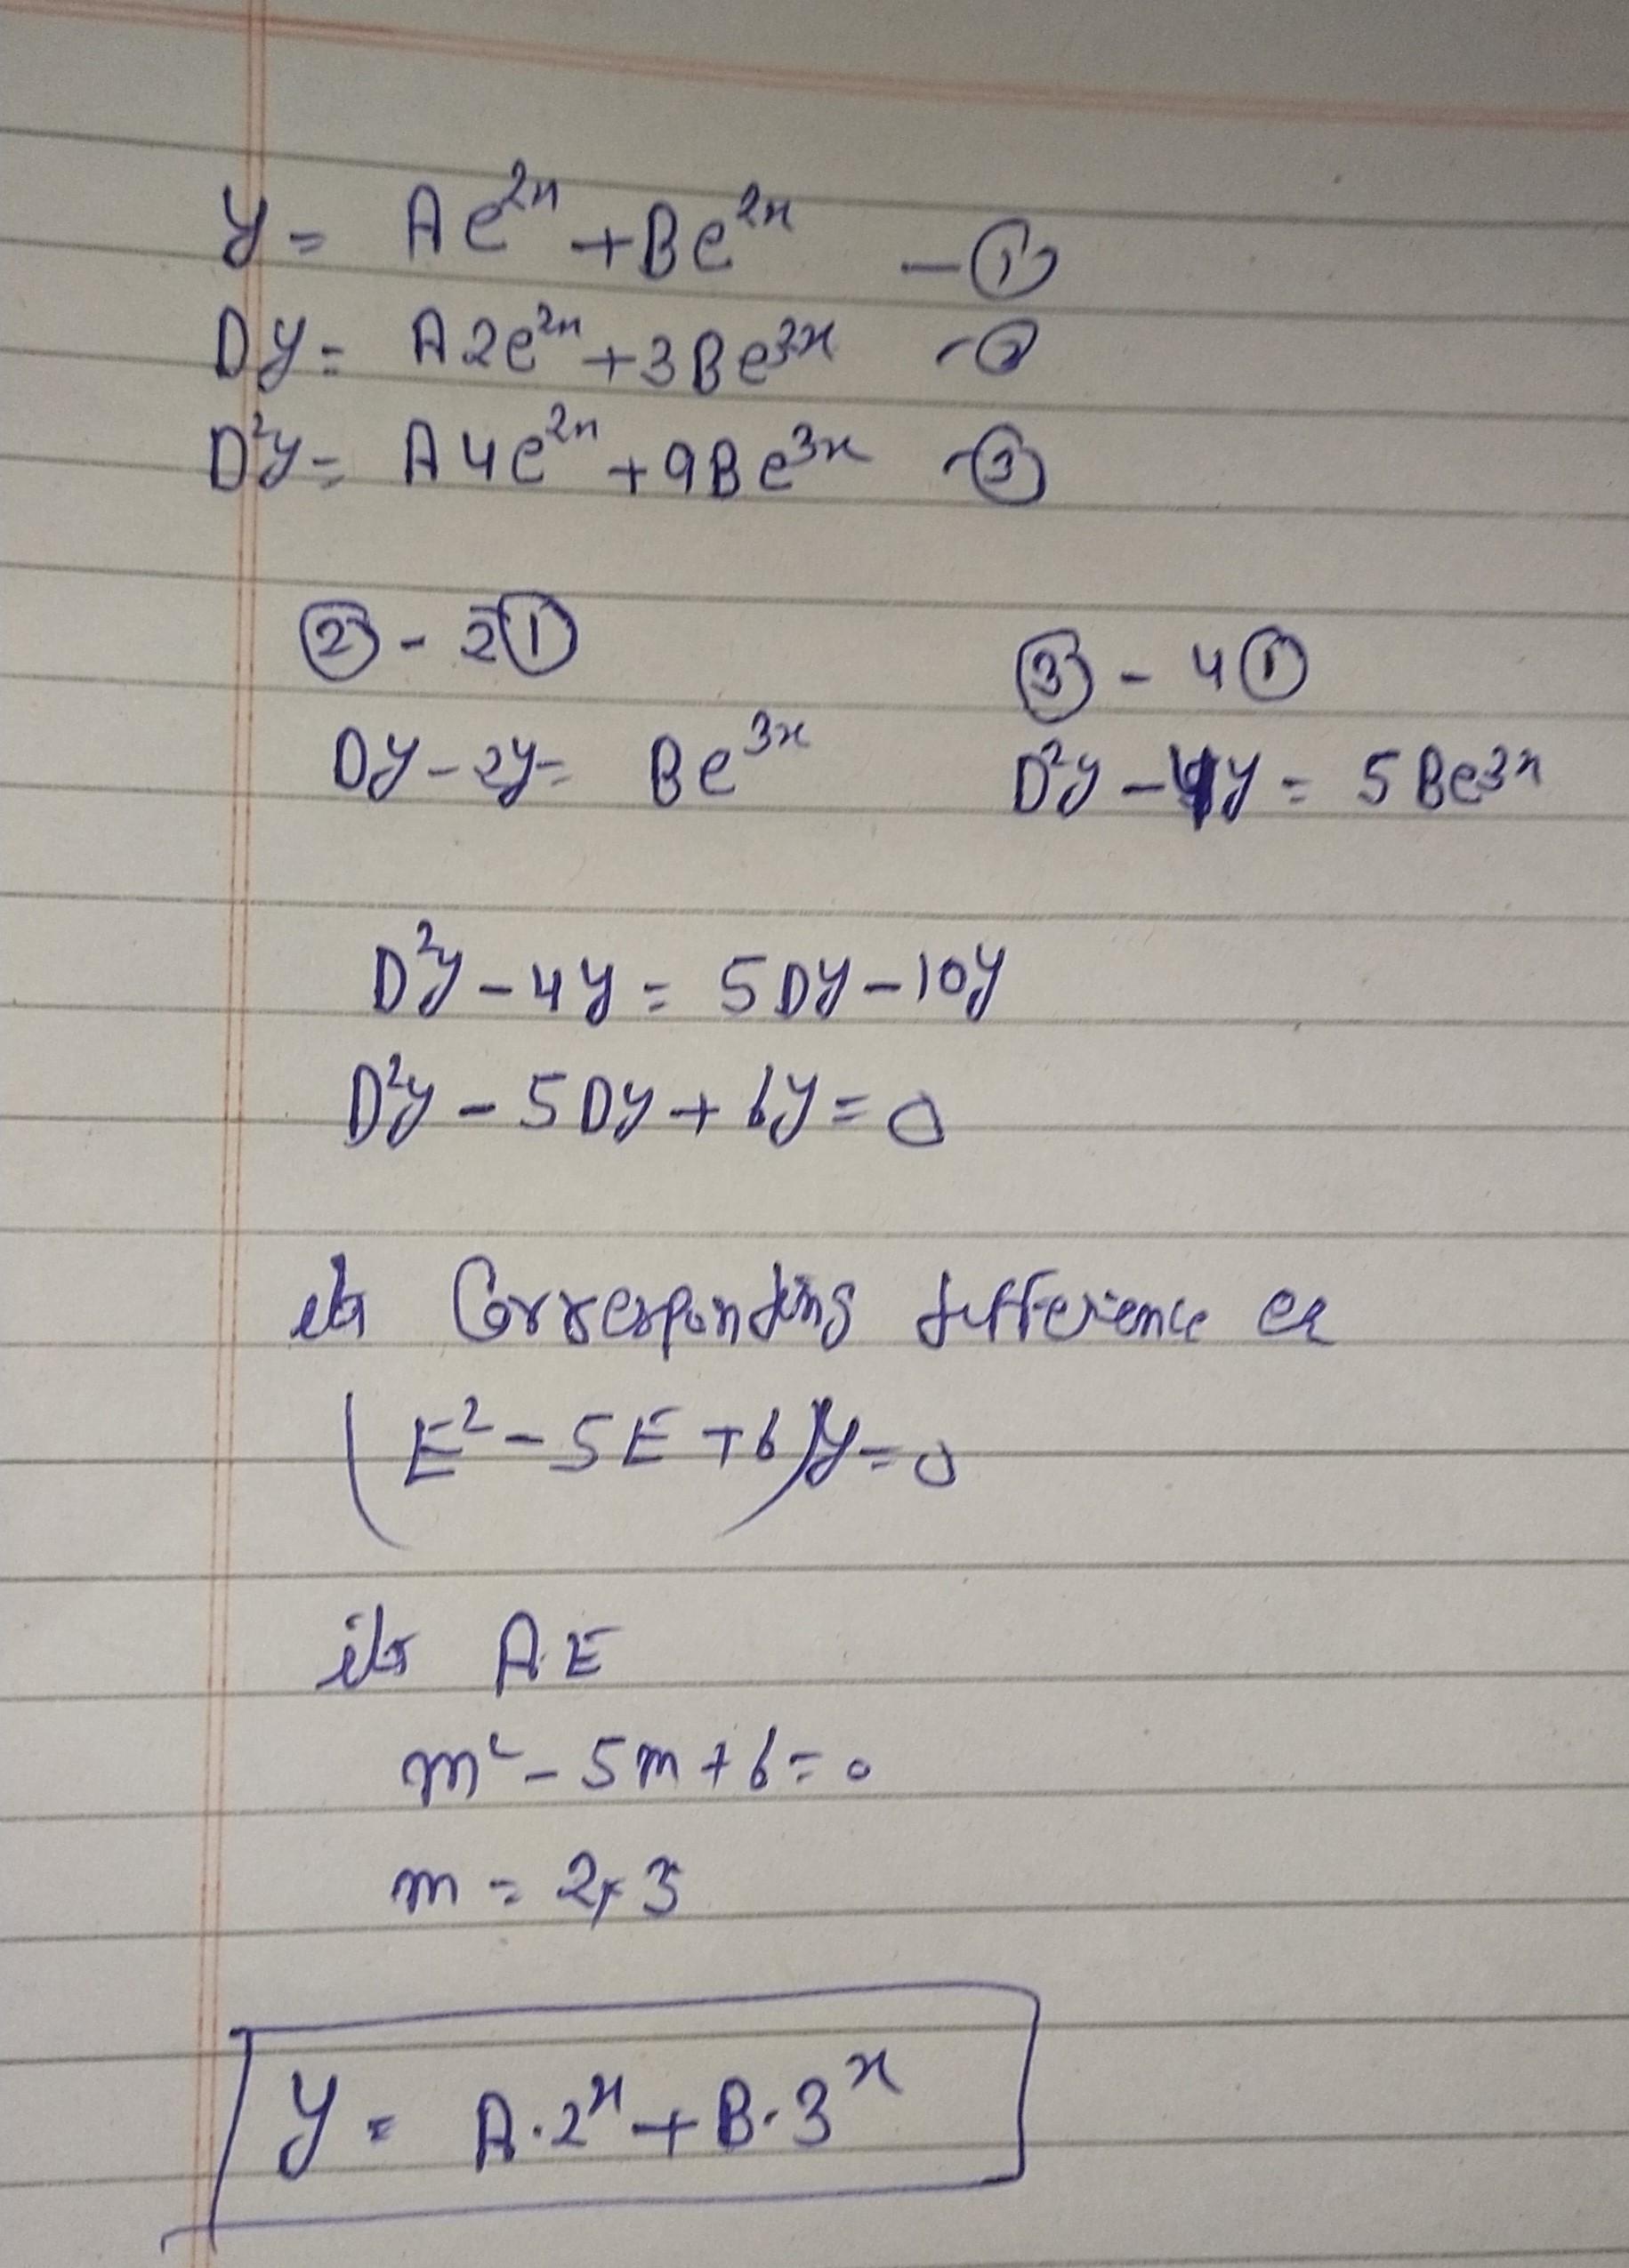 y = Ae^{2x} + Be^{2x} — ①
Dy = A2e^{2x} + 3Be^{3x} - ②
D²y = A4e^{2x} + 9Be^{3x} - ③
② - 2①
③ - 4①
Dy - 2y = Be^{3x}
D²y - 4y = 5Be^{3x}
D²y - 4y = 5Dy - 10y
D²y - 5Dy + 6y = 0
its Corresponding difference er
(E² - 5E + 6)y = 0
its A.E
m² - 5m + 6 = 0
m = 2, 3
y = A·2^x + B·3^x